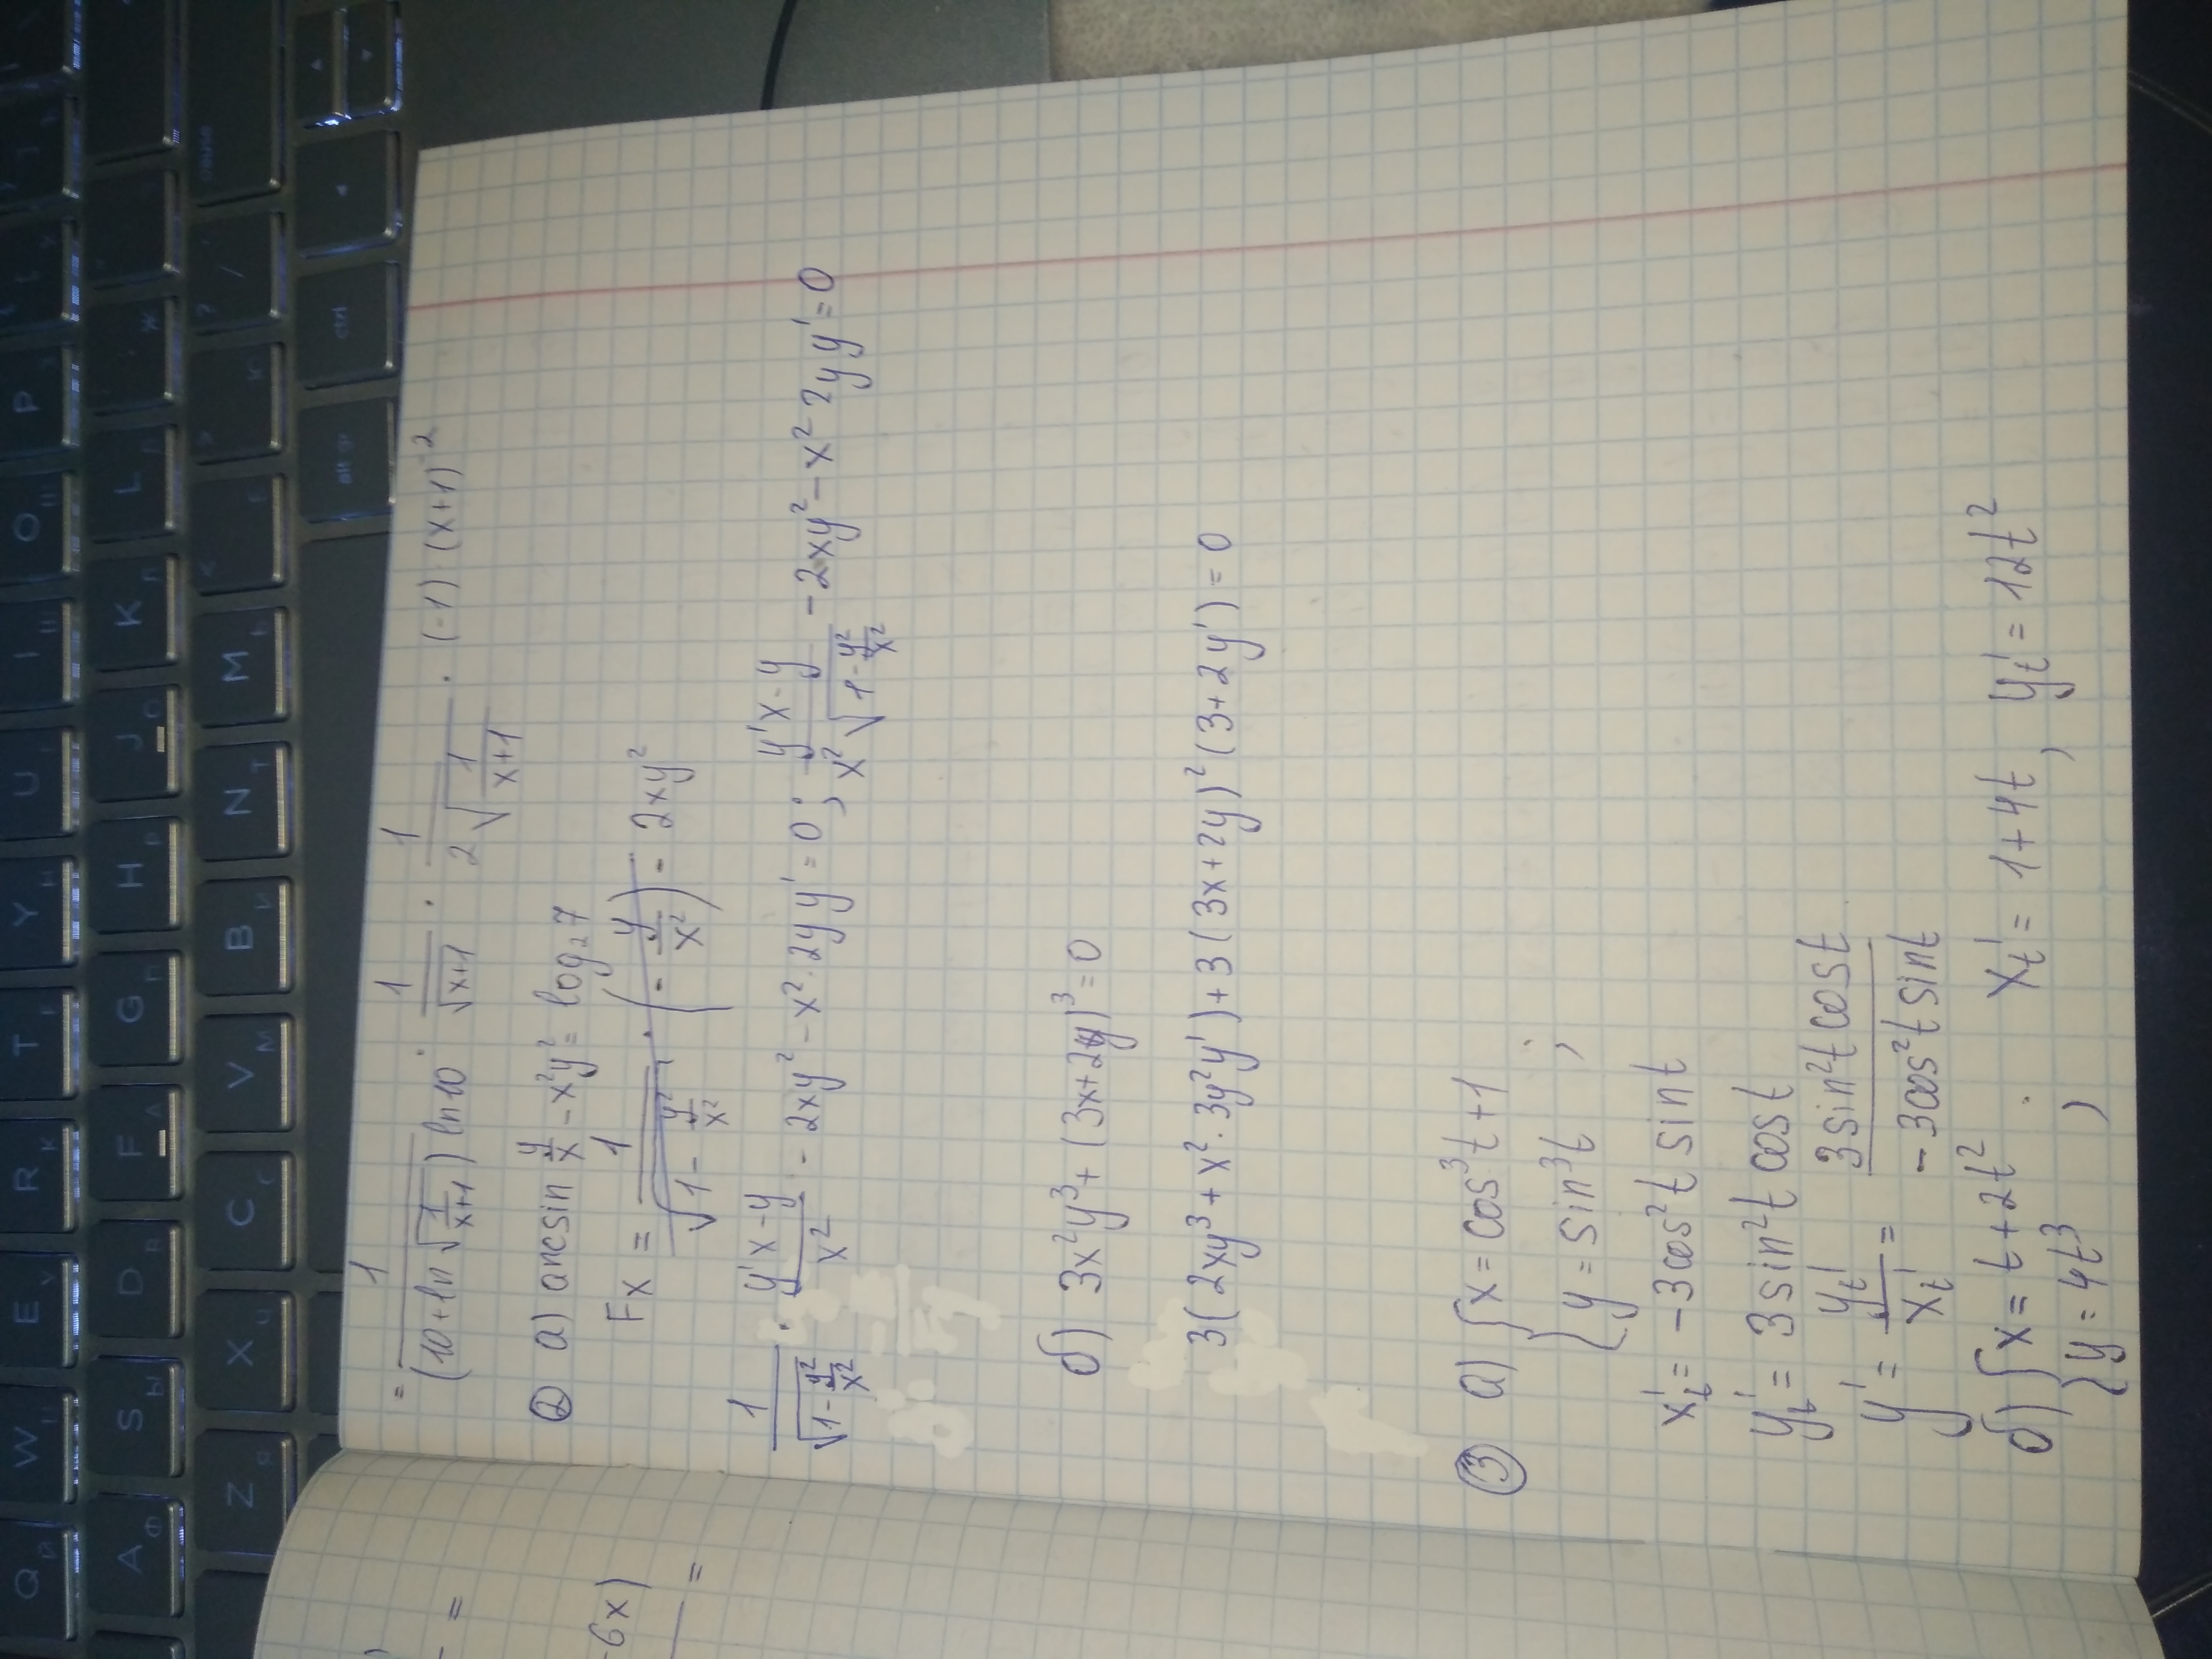 Q Й W Ц E У R К T Е Y Н U I Ш O Щ P
A Ф S Ы D В F А G П H Р J О K Л L Д Ж
Z Я X Ч C С V М B И N Т M Ь < > Ю ? / pause
alt gr ctrl
= 1/((10+ln√(1/(x+1))) ln10) · 1/√(x+1) · 1/(2√(1/(x+1))) · (-1) · (x+1)^-2
② а) arcsin y/x - x²y² = log₂7
Fx = 1/√(1 - y²/x²) · (- y/x²) - 2xy²
1/√(1 - y²/x²) · (y'x - y)/x² - 2xy² - x² · 2y y' = 0 ; (y'x - y)/(x²√(1 - y²/x²)) - 2xy² - x² 2y y' = 0
б) 3x²y³ + (3x+2y)³ = 0
3(2xy³ + x² · 3y²y') + 3(3x+2y)²(3+2y') = 0
③ а) { x = cos³t + 1
y = sin³t ;
x't = -3cos²t sint
y't = 3sin²t cost
y' = yt'/xt' = 3sin²t cost/(-3cos²t sint)
б) { x = t + 2t²
y = 4t³ ; xt' = 1+4t, yt' = 12t²
-6x)
=
=